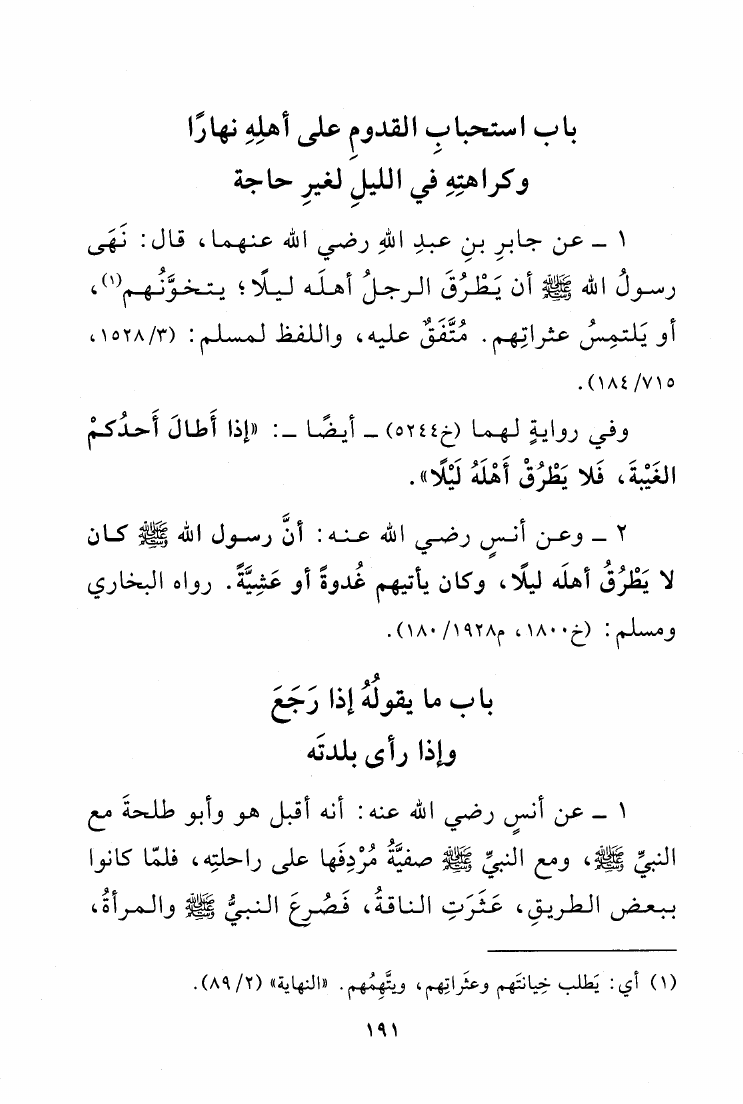 باب استحبابِ القدومِ على أهلِهِ نهارًا
وكراهتِهِ في الليلِ لغيرِ حاجة
١ ـ عن جابرِ بنِ عبدِ اللهِ رضي الله عنهما، قال: نَهَى
رسولُ الله ﷺ أن يَطْرُقَ الرجلُ أهلَه ليلًا؛ يتخوَّنُهم(١)،
أو يَلتمِسُ عثراتِهم. مُتَّفَقٌ عليه، واللفظ لمسلم: (١٥٢٨/٣،
١٨٤/٧١٥).
وفي روايةٍ لهما (خ٥٢٤٤) ـ أيضًا ـ: «إذا أَطالَ أَحدُكمْ
الغَيْبةَ، فَلا يَطْرُقْ أَهْلَهُ لَيْلًا».
٢ ـ وعن أنسٍ رضي الله عنه: أنَّ رسول الله ﷺ كان
لا يَطْرُقُ أهلَه ليلًا، وكان يأتيهم غُدوةً أو عَشِيَّةً. رواه البخاري
ومسلم: (خ١٨٠٠، م١٨٠/١٩٢٨).
باب ما يقولُهُ إذا رَجَعَ
وإذا رأى بلدتَه
١ ـ عن أنسٍ رضي الله عنه: أنه أقبل هو وأبو طلحةَ مع
النبيِّ ﷺ، ومع النبيِّ ﷺ صفيَّةُ مُرْدِفَها على راحلتِه، فلمّا كانوا
ببعض الطريقِ، عَثَرَتِ الناقةُ، فَصُرِعَ النبيُّ ﷺ والمرأةُ،
(١) أي: يَطلب خِيانتَهم وعثَراتِهم، ويتَّهِمُهم. «النهاية» (٨٩/٢).
١٩١